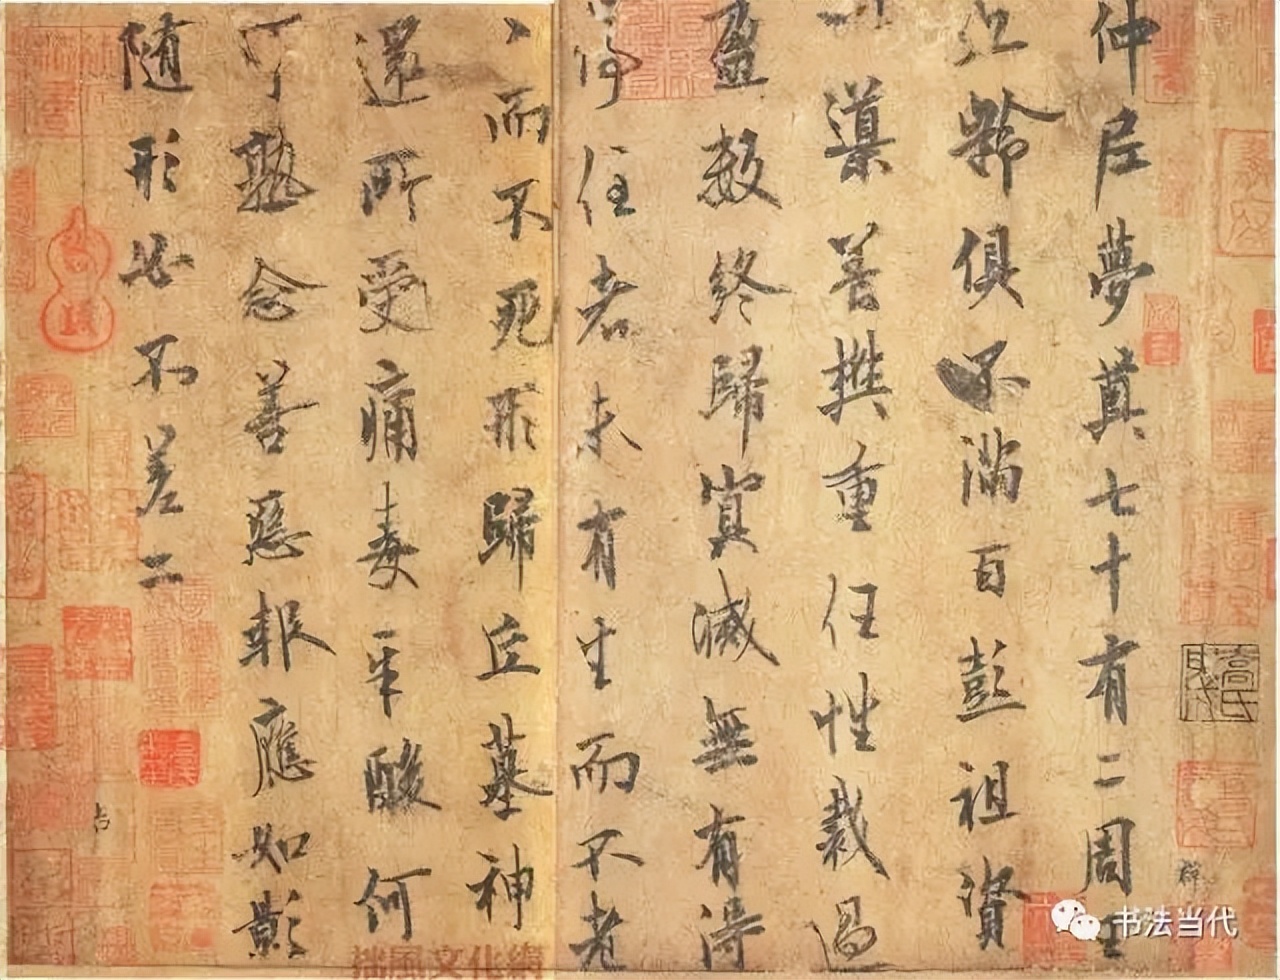 仲尼夢奠七十有二周王
九齡俱不滿百彭祖資
以導養樊重任性裁過
盈數終歸冥滅無有得
停住者未有生而不老
〻而不死形歸丘墓神
還所受痛毒辛酸何
可熟念善惡報應如影
隨形必不差二
书法当代